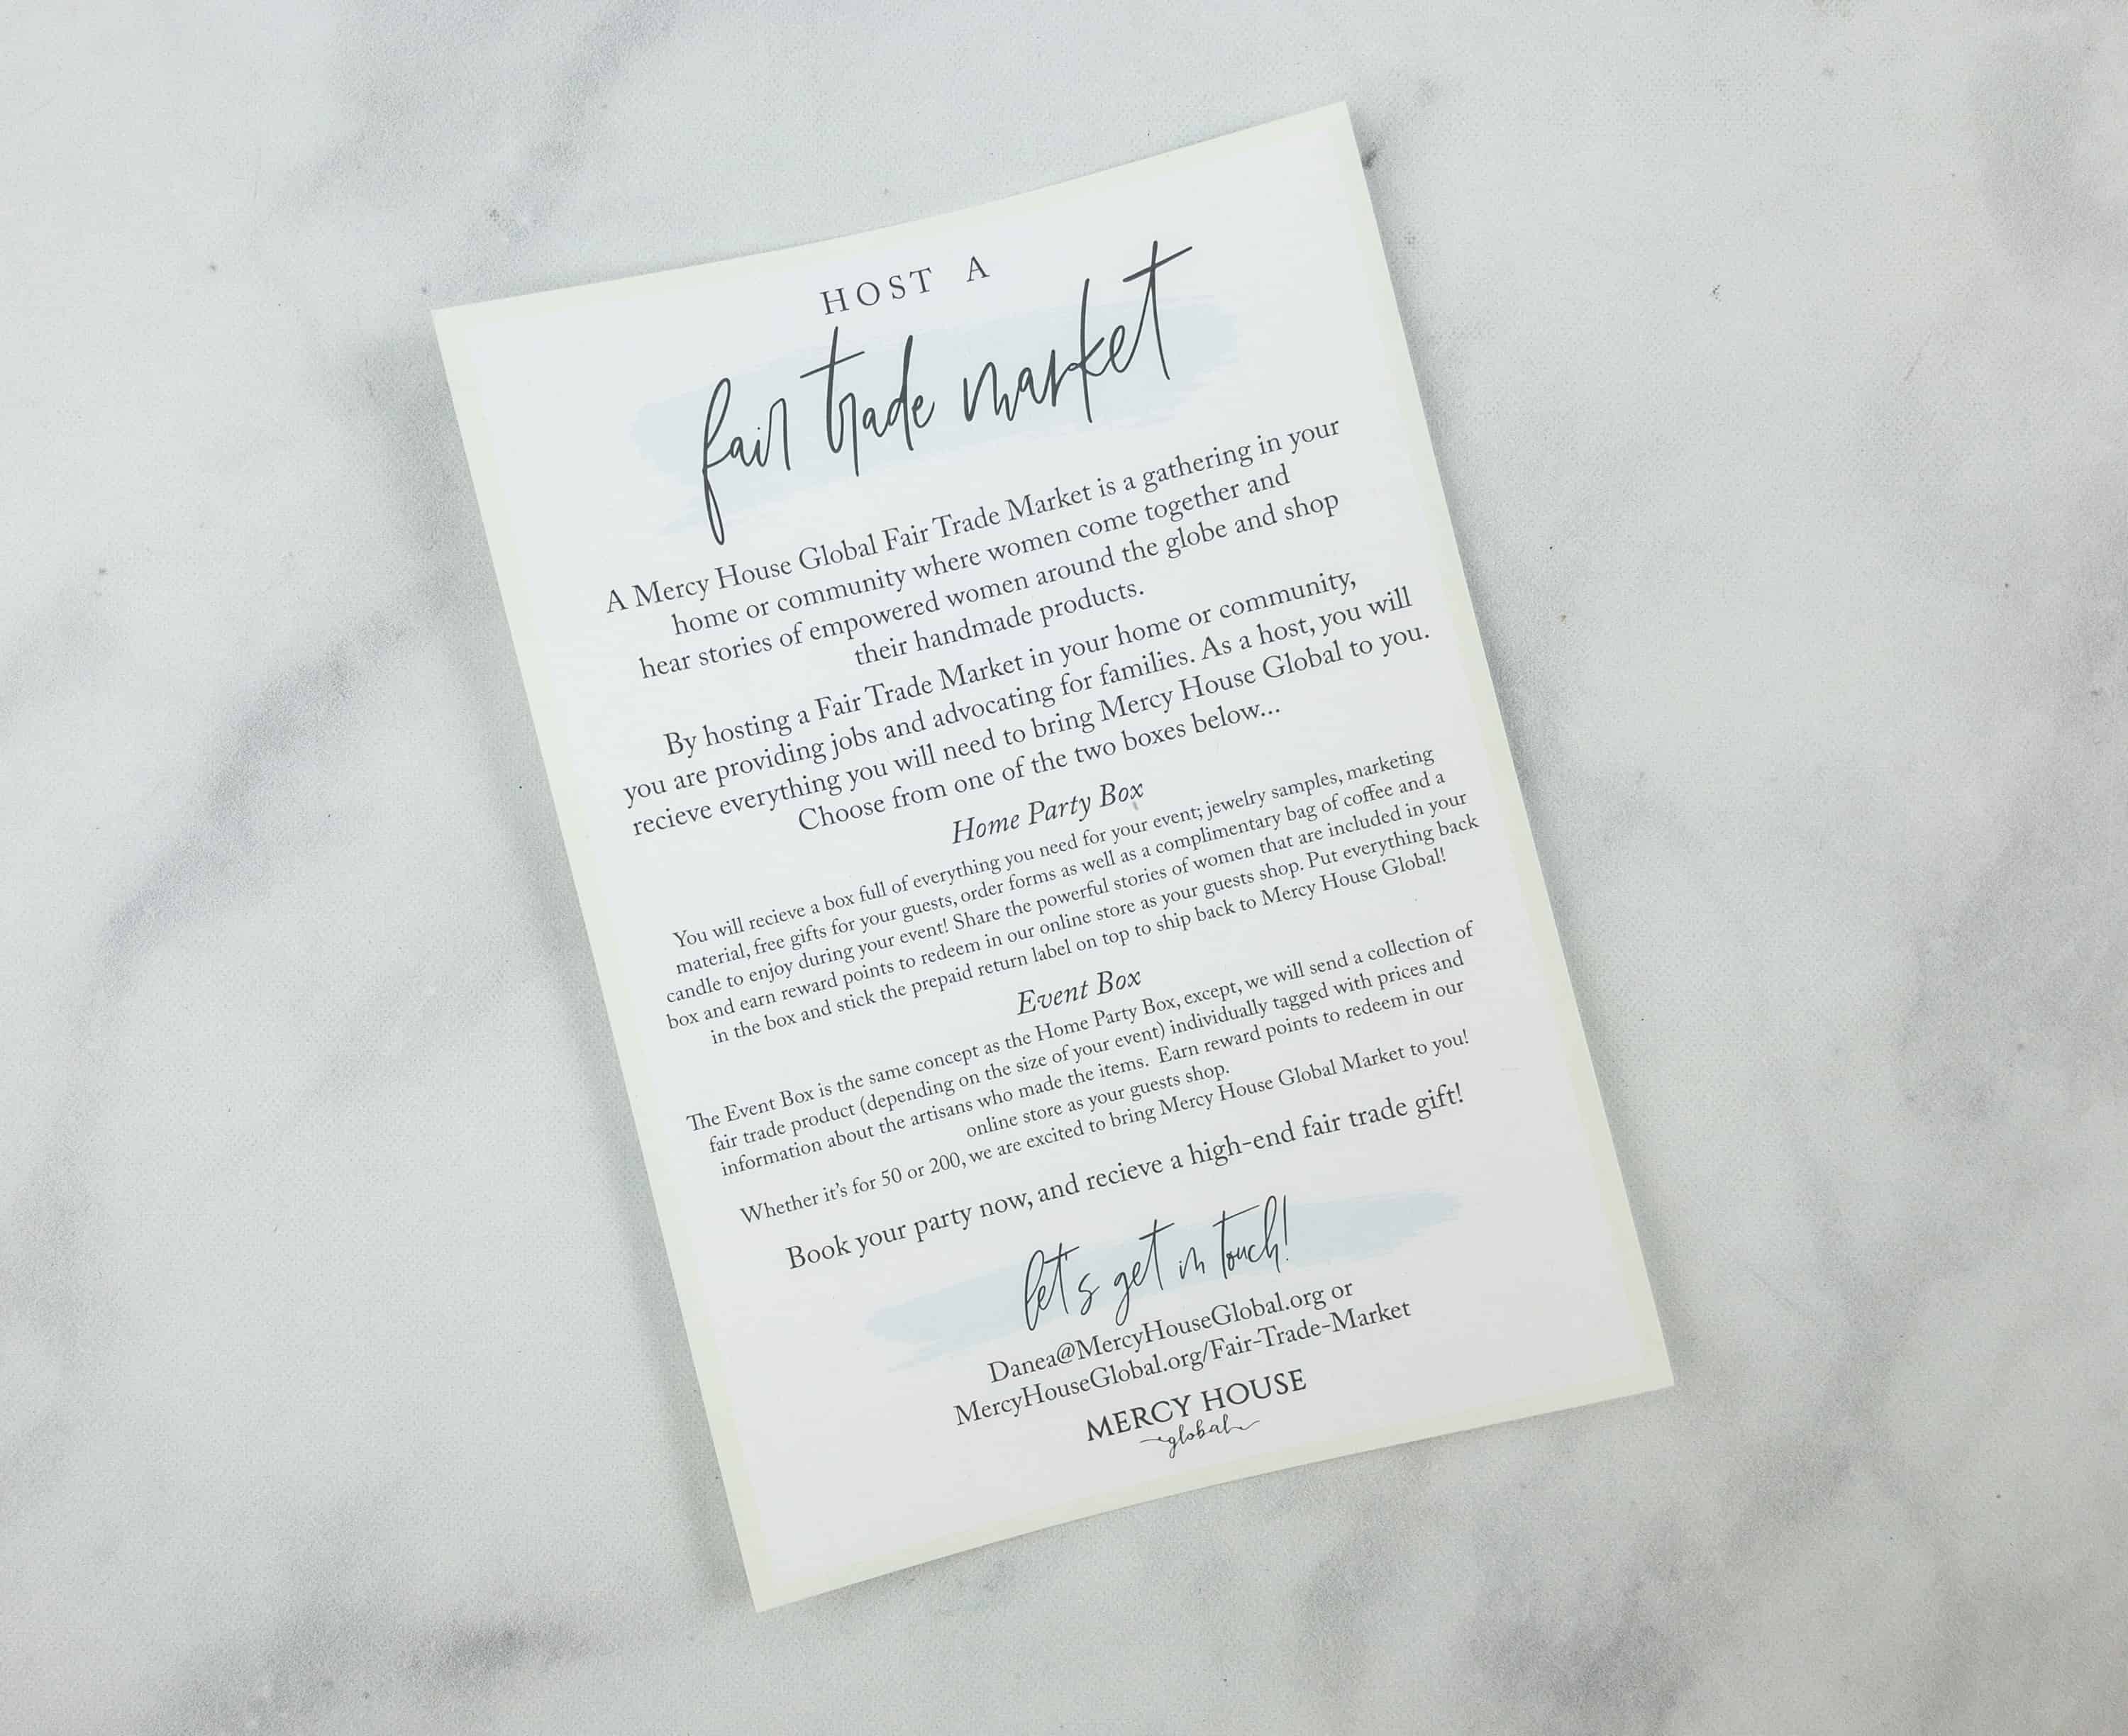 HOST A
fair trade market
A Mercy House Global Fair Trade Market is a gathering in your
home or community where women come together and
hear stories of empowered women around the globe and shop
their handmade products.
By hosting a Fair Trade Market in your home or community,
you are providing jobs and advocating for families. As a host, you will
recieve everything you will need to bring Mercy House Global to you.
Choose from one of the two boxes below...
Home Party Box
You will recieve a box full of everything you need for your event; jewelry samples, marketing
material, free gifts for your guests, order forms as well as a complimentary bag of coffee and a
candle to enjoy during your event! Share the powerful stories of women that are included in your
box and earn reward points to redeem in our online store as your guests shop. Put everything back
in the box and stick the prepaid return label on top to ship back to Mercy House Global!
Event Box
The Event Box is the same concept as the Home Party Box, except, we will send a collection of
fair trade product (depending on the size of your event) individually tagged with prices and
information about the artisans who made the items. Earn reward points to redeem in our
online store as your guests shop.
Whether it's for 50 or 200, we are excited to bring Mercy House Global Market to you!
Book your party now, and recieve a high-end fair trade gift!
let's get in touch!
Danea@MercyHouseGlobal.org or
MercyHouseGlobal.org/Fair-Trade-Market
MERCY HOUSE
global